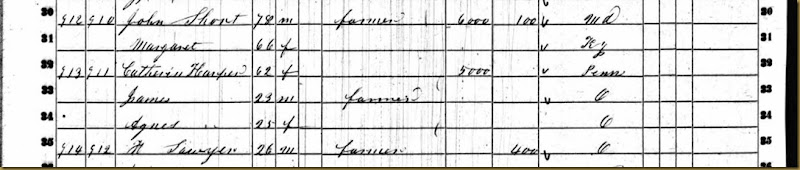 30 912 910 John Short 78 m farmer 6000 100 v Md 30
31 Margaret 66 f Ky 31
32 913 911 Catherine Harper 62 f 5000 v Penn 32
33 James 23 m farmer v O 33
34 Agnes " 25 f O 34
35 914 912 H Sawyer 26 m farmer 400 v O 35
36